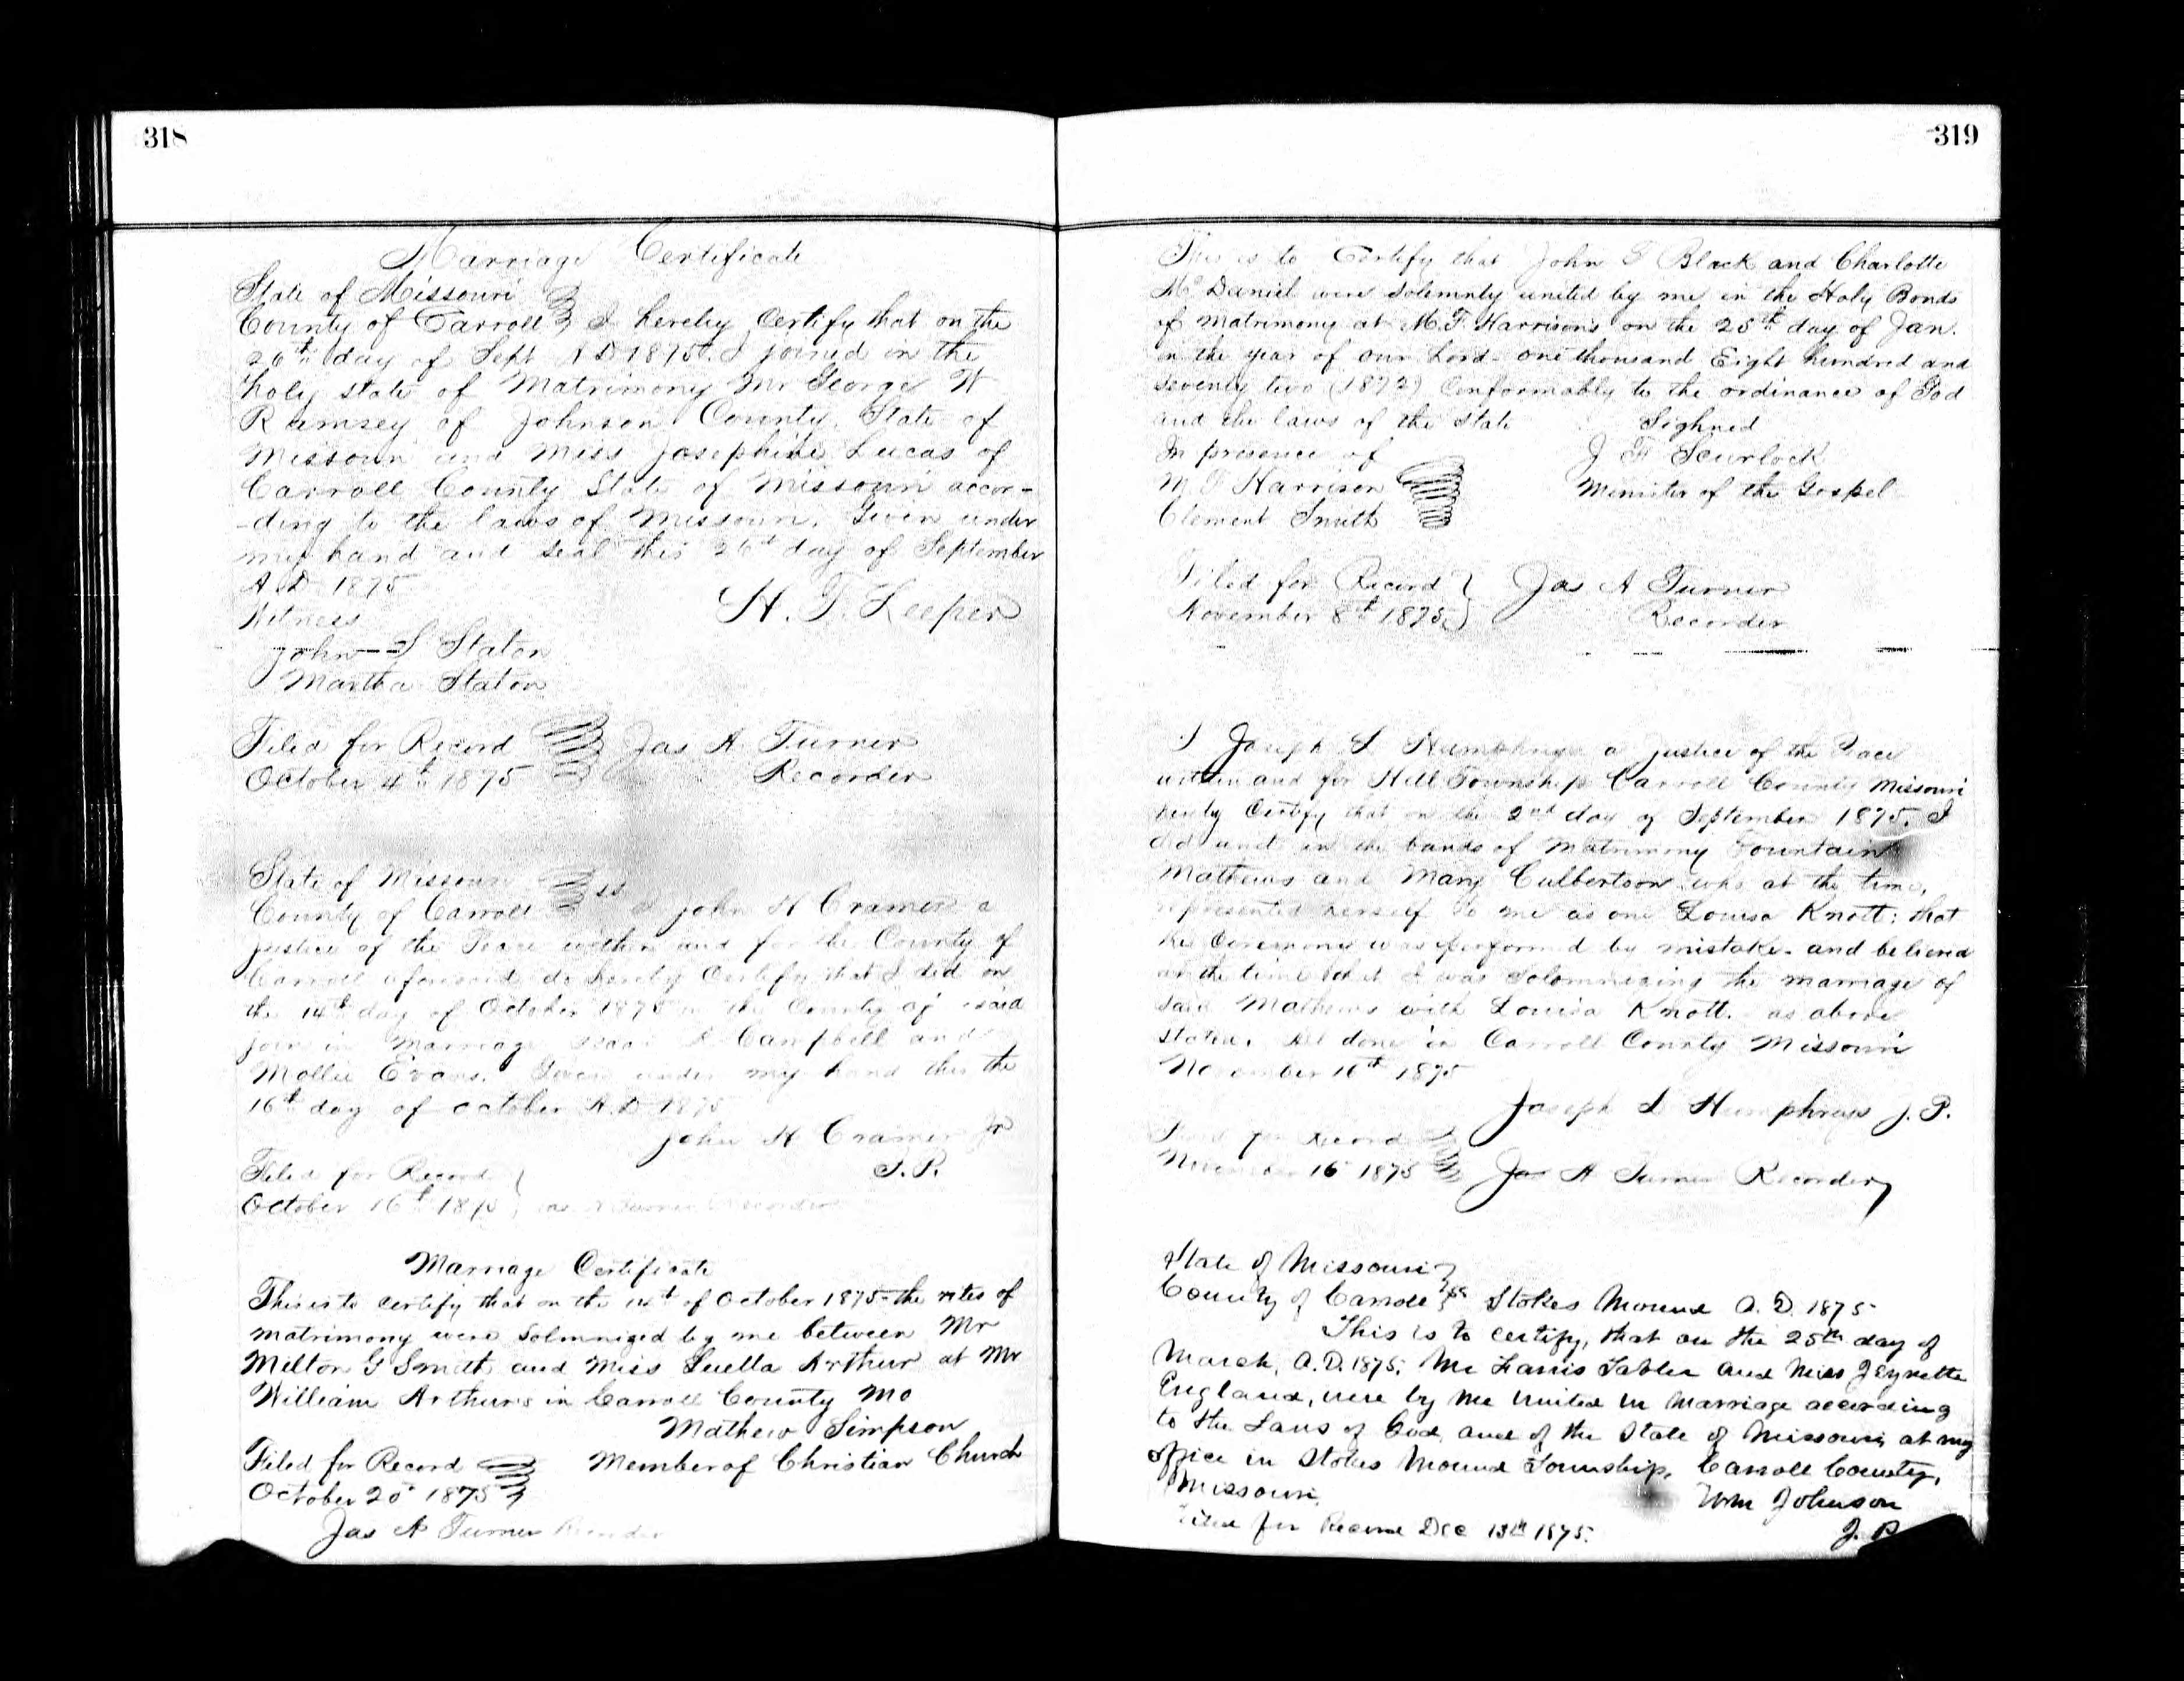 318
Marriage Certificate
State of Missouri
County of Carroll I hereby Certify that on the
26th day of Sept A D 1875. I joined in the
holy state of Matrimony Mr George W
Ramsey of Johnson County, State of
Missouri and Miss Josephine Lucas of
Carroll County State of Missouri accor-
-ding to the laws of Missouri. Given under
my hand and seal this 26th day of September
A D 1875
Witness H. T. Leeper
John S Staton
Martha Staton
Filed for Record Jas A Turner
October 4th 1875 Recorder
State of Missouri
County of Carroll ss I John H Cramer a
Justice of the Peace within and for the County of
Carroll aforesaid do hereby Certify that I did on
the 14th day of October 1875 in the County of said
join in Marriage Isaac R Campbell and
Mollie Evans. Given under my hand this the
16th day of October A.D 1875
John H Cramer Jr
J.P.
Filed for Record
October 16th 1875 Jas A Turner Recorder
Marriage Certificate
This is to certify that on the 14th of October 1875 the rites of
matrimony were Solmnized by me between Mr
Milton G Smith and Miss Luella Arthur at Mr
William Arthurs in Carroll County Mo
Mathew Simpson
Filed for Record Member of Christian Church
October 20 1875
Jas A Turner Recorder
319
This is to Certify that John S Black and Charlotte
Mc Daniel were Solemnly united by me in the Holy Bonds
of Matrimony at M. F. Harrison's on the 25th day of Jan.
in the year of our Lord one thousand Eight hundred and
Seventy two (1872) Conformably to the ordinance of God
and the laws of the State Sighned
In presence of J F Scurlock
M F Harrison Minister of the Gospel
Clement Smith
Filed for Record Jas A Turner
November 8th 1875 Recorder
I Joseph L Humphreys a Justice of the Peace
within and for Hill Township Carroll County Missouri
heriby Certify that on the 2nd day of September 1875, I
did unit in the bands of Matrimony Fountain
Mathews and Mary Culbertson who at the time,
represented herself to me as one Louisa Knott; that
the Ceremony was performed by mistake. and beliend
at the time that I was Solomnizing the marriage of
said Mathews with Louisa Knott. as above
stated. All done in Carroll County Missouri
November 16th 1875
Joseph L Humphreys J. P.
Filed for Record
November 16 1875 Jas A Turner Recorder
State of Missouri
County of Carroll ss Stokes Mound A. D. 1875
This is to certify, that on the 25th day of
March, A.D. 1875, Mr Farris Tabler and Miss Jeynette
England, were by me united in marriage according
to the Laws of God, and of the State of Missouri, at my
office in Stokes Mound Township, Carroll County,
Missouri. Wm Johnson
Filed for Record Dec 13th 1875. J. P.